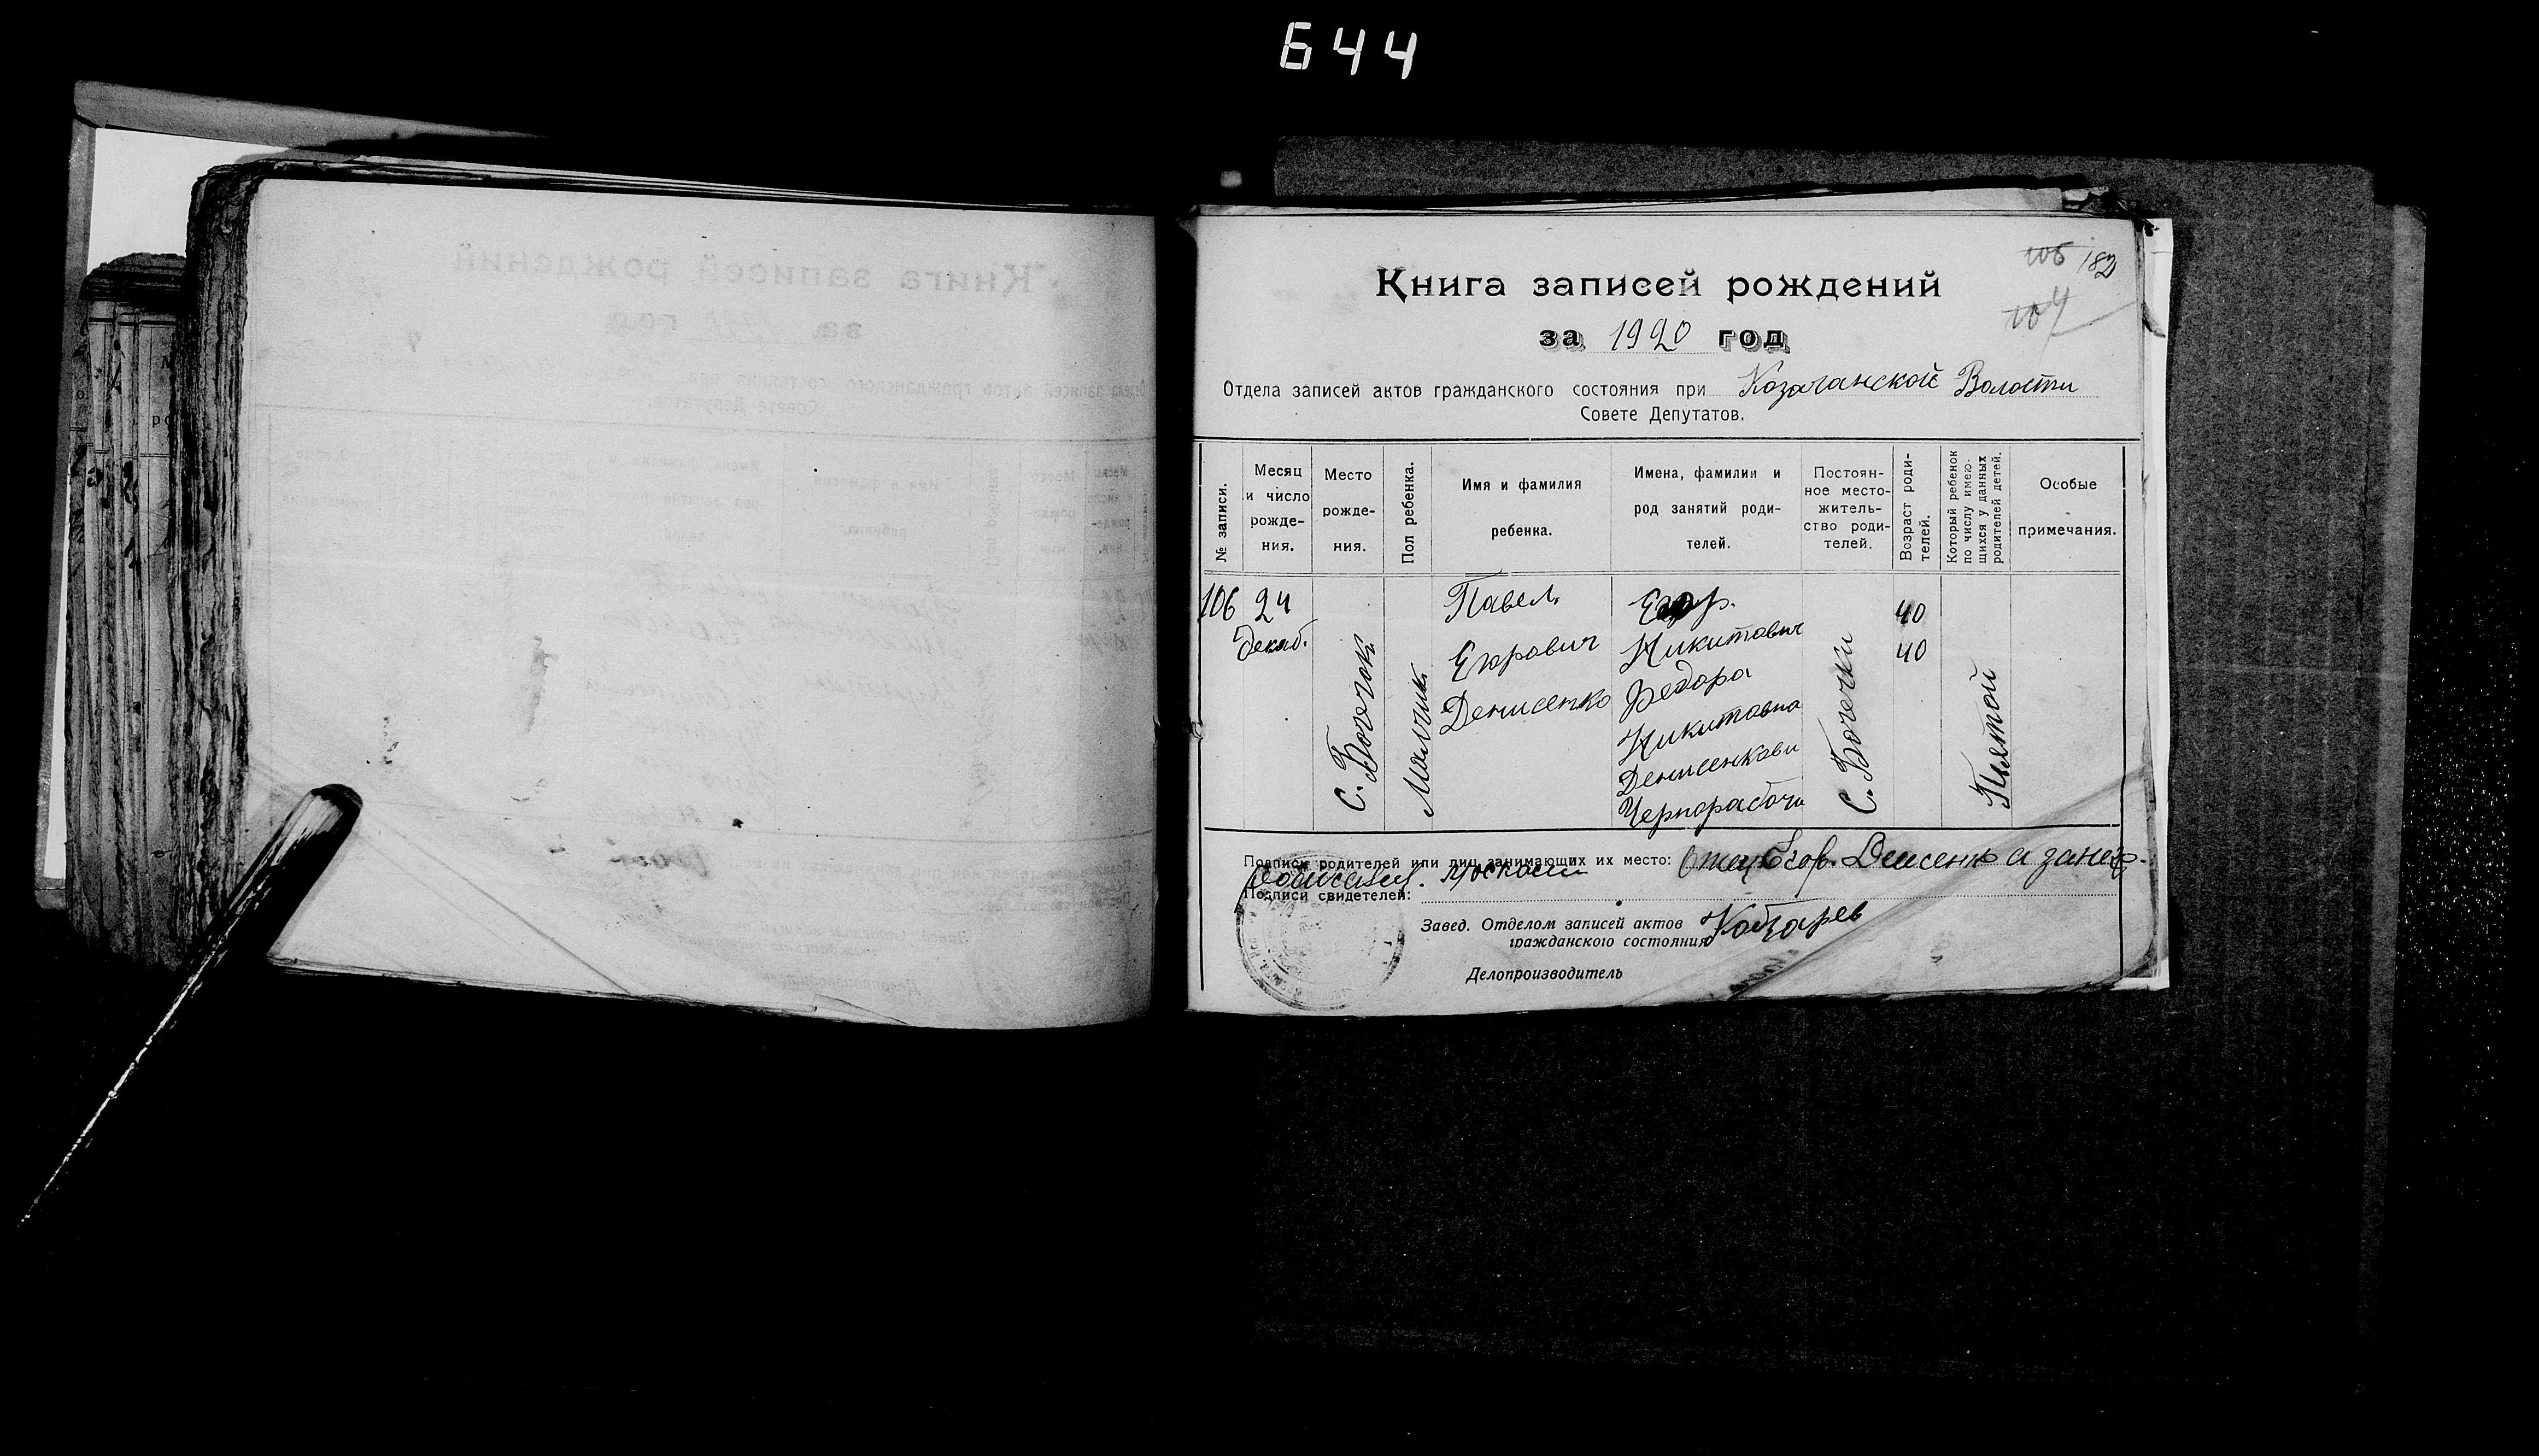 644
106 182
104
Книга записей рождений
за 1920 год
Отдела записей актов гражданского состояния при Козачанской Волости
Совете Депутатов.
№ записи.
Месяц и число рожде- ния.
Место рожде- ния.
Пол ребенка.
Имя и фамилия ребенка.
Имена, фамилии и род занятий роди- телей.
Постоян- ное место- житель- ство роди- телей.
Возраст роди- телей.
Который ребенок по числу имею- щихся у данных родителей детей.
Особые примечания.
106
24
Декаб.
с. Бочечок
Мальчик
Павел
Егорович
Денисенко
Егор
Никитович
Федора
Никитовна
Денисенкови
Чернорабочи
с. Бочечки
40
40
Пятой
Подписи родителей или лиц занимающих их место: Отец Егор. Денсенко а занегр.
Подписи свидетелей:
Завед. Отделом записей актов
гражданского состояния Кобзарев
Делопроизводитель